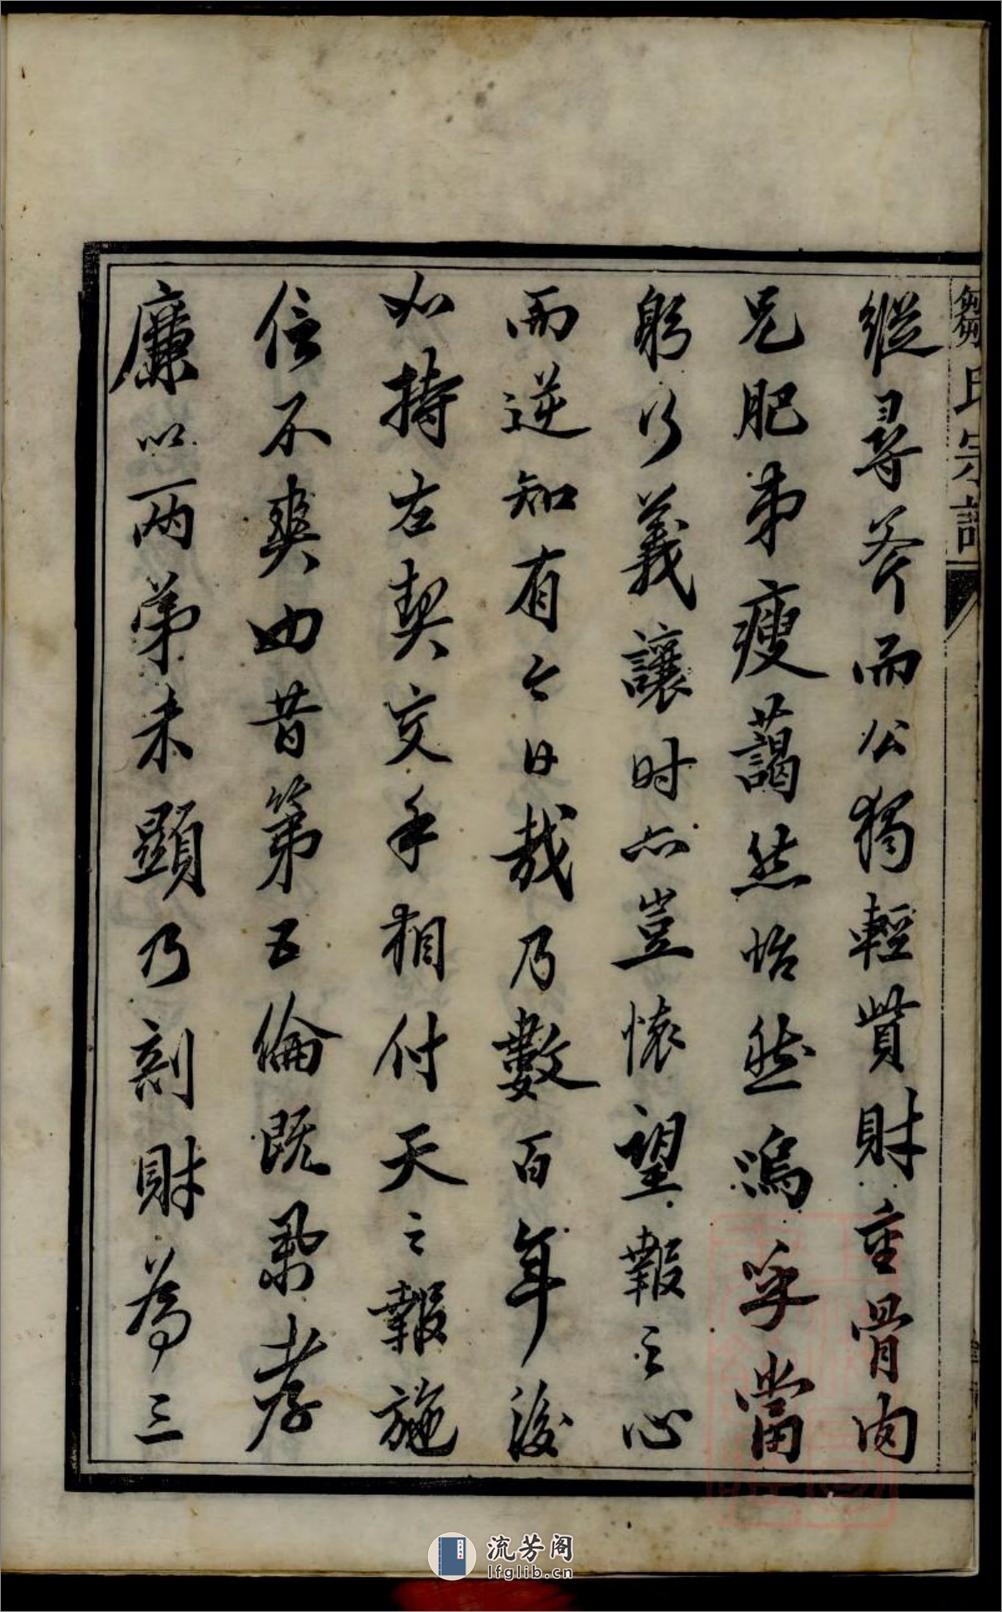 鄒氏宗譜
縱尋斧而公獨輕貲財重骨肉
兄肥弟瘦藹然怡然嗚乎當
躬行義讓时亦豈懷望報之心
而逆知有今日哉乃數百年後
如持左契交手相付天之報施
信不爽也昔第五倫既舉孝
廉以两弟未顯乃剖財為三
流芳阁
lfglib.cn